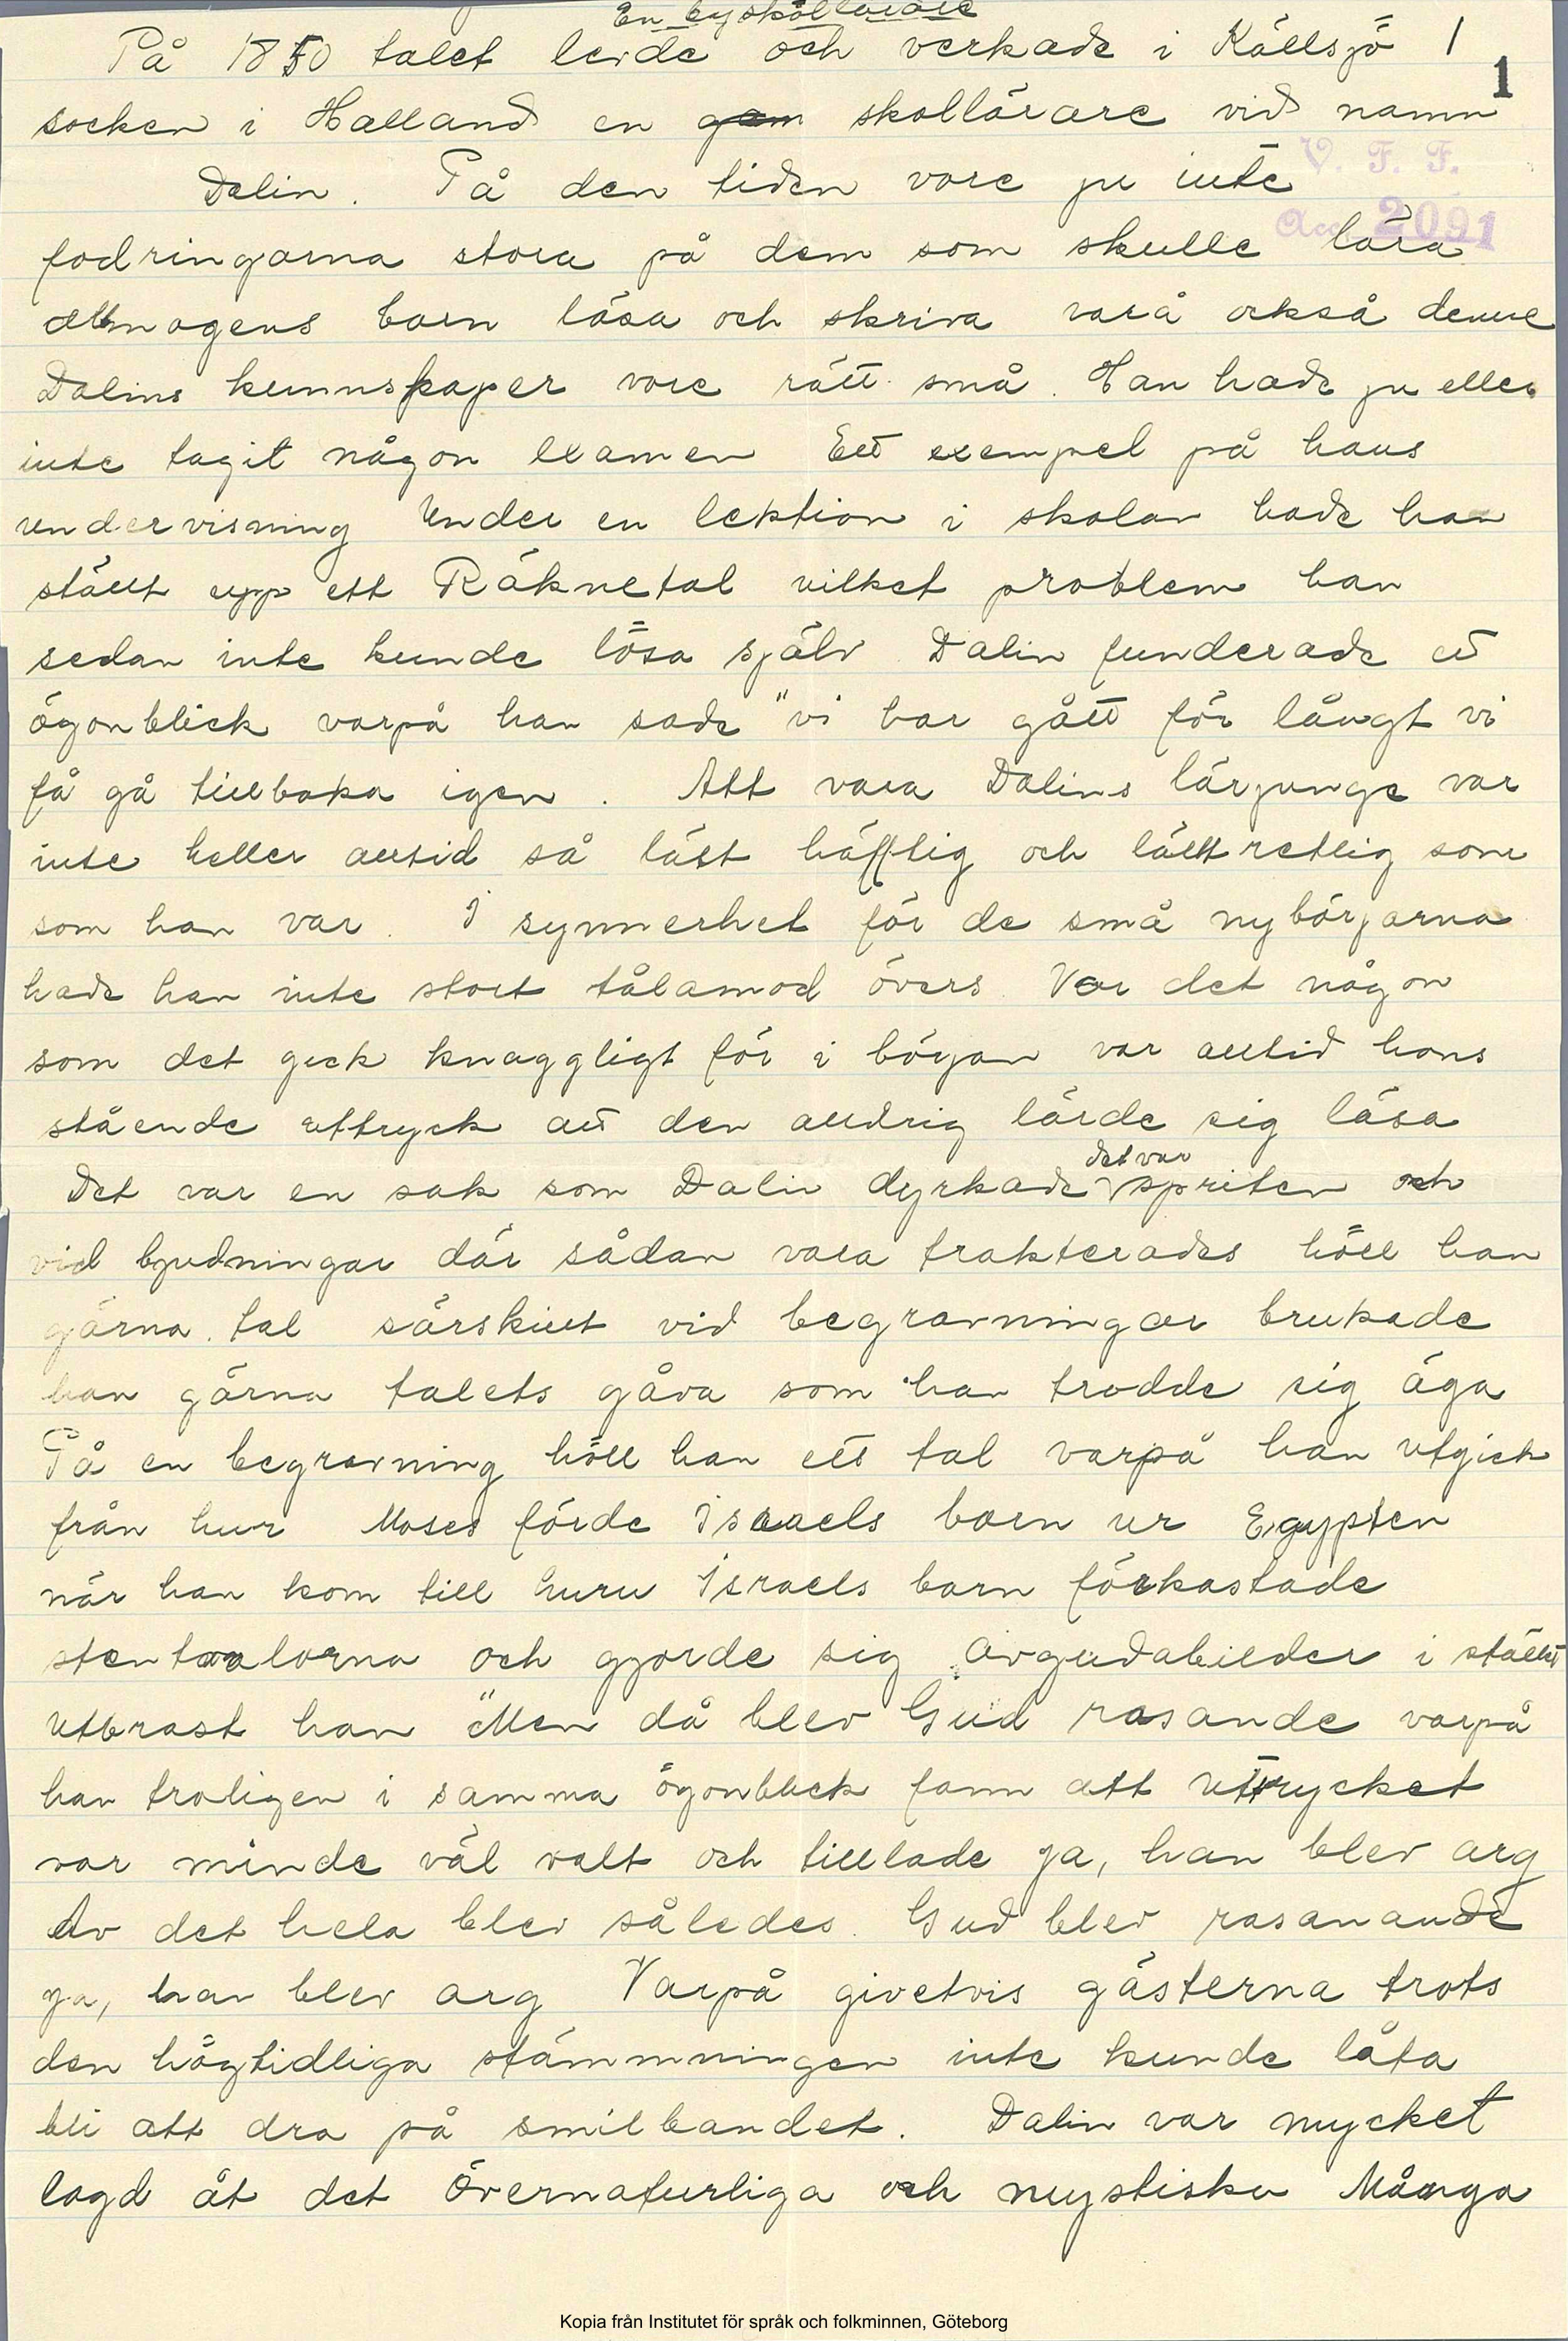 En byskollärare
På 1850 talet levde och verkade i Källsjö 1
1
socken i Halland en skollärare vid namn
V. F. F.
Dalin. På den tiden vore ju inte
Acc. 2091
fodringarna stora på dem som skulle lära
allmogens barn läsa och skriva varå också denne
Dalins kunnskaper vore rätt små. Han hade ju eller
inte tagit någon examen Ett exempel på hans
undervisning Under en lektion i skolan hade han
ställt upp ett Räknetal vilket problem han
sedan inte kunde lösa själv Dalin funderade ett
ögonblick varpå han sade "vi har gått för långt vi
få gå tillbaka igen. Att vara Dalins lärjunge var
inte heller alltid så lätt häfftig och lättretlig som
som han var. I synnerhet för de små nybörjarna
hade han inte stort tålamod övers. Var det någon
som det geck knaggligt för i början var alltid hans
stående uttryck att den alldrig lärde sig läsa
Det var en sak som Dalin dyrkade det var spriten och
vid bjudningar där sådan vara trakterades höll han
gärna tal särskillt vid begravningar brukade
han gärna talets gåva som han trodde sig äga
På en begravning höll han ett tal varpå han utgick
från hur Moses förde Israels barn ur Egypten
när han kom till huru Israels barn förkastade
stentavlorna och gjorde sig Avgudabilder i stället
utbrast han "Men då blev Gud rasande varpå
han troligen i samma ögonblick fann att uttrycket
var minde väl valt och tillade ja, han blev arg
Av det hela blev således. Gud blev rasanande
ja, han blev arg Varpå givetvis gästerna trots
den högtidliga stämmningen inte kunde låta
bli att dra på smilbandet. Dalin var mycket
lagd åt det Övernaturliga och mystiska Många
Kopia från Institutet för språk och folkminnen, Göteborg